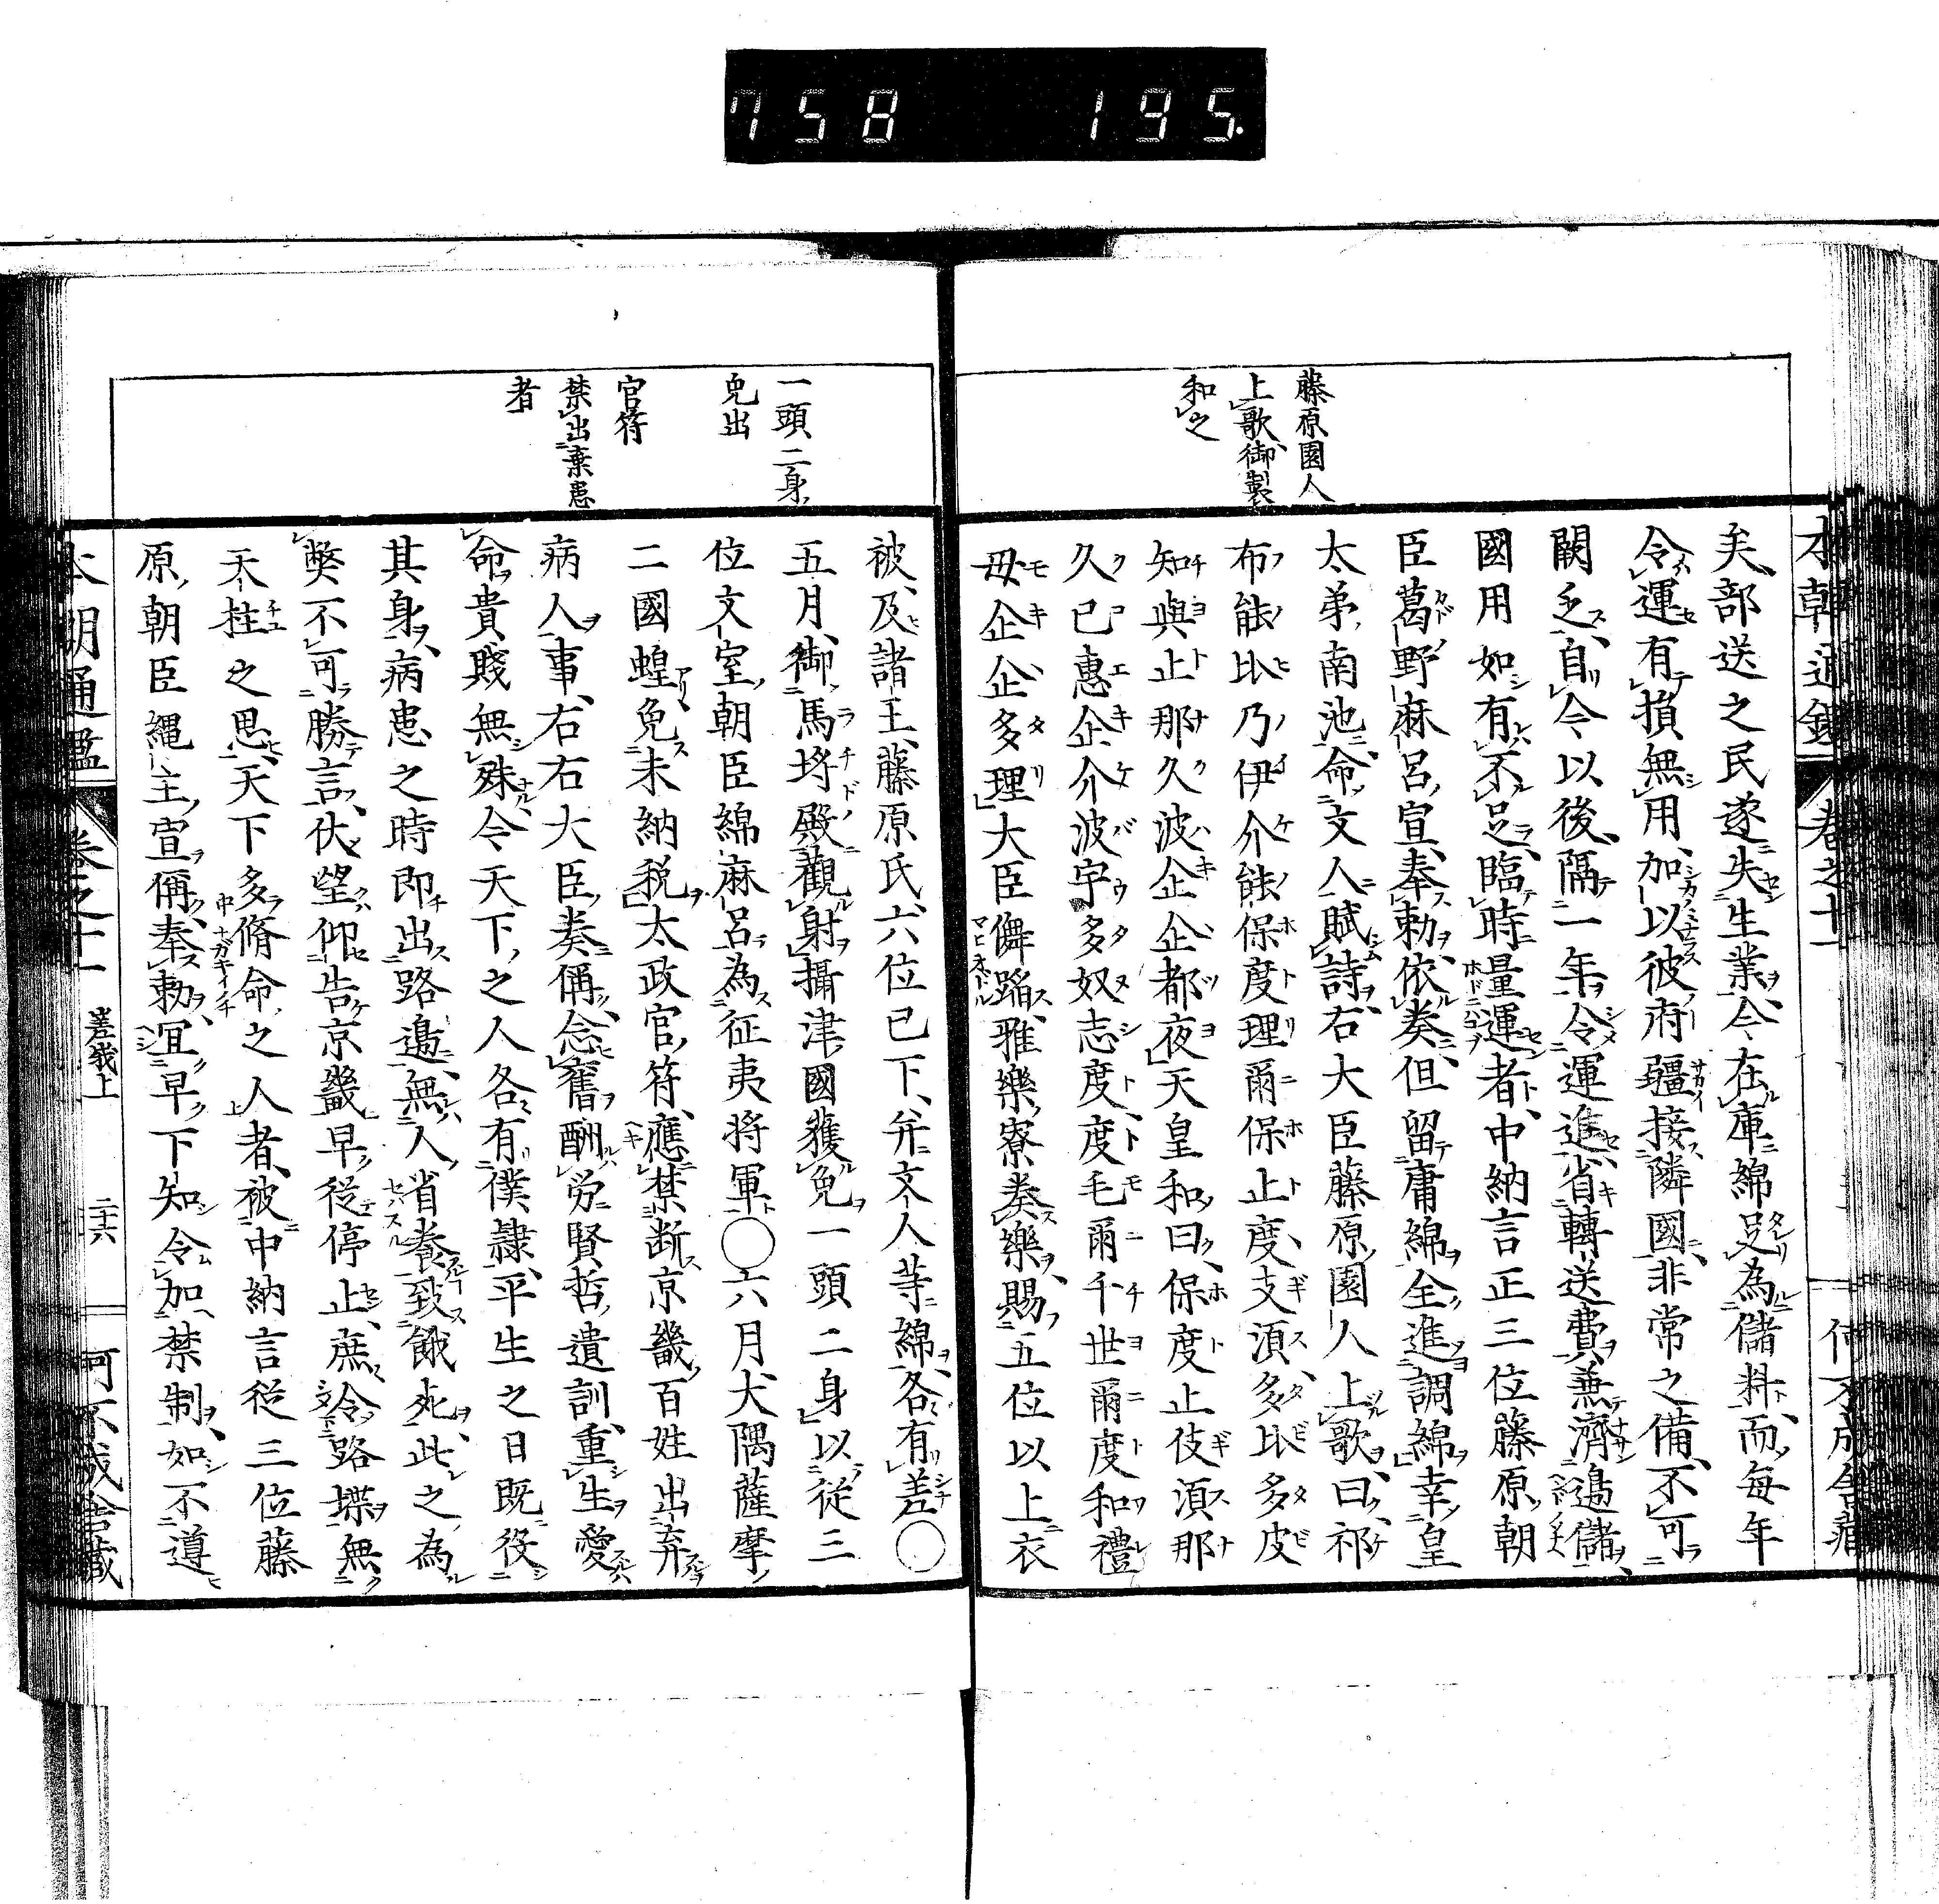 758 195.
本朝通鑑 卷之十一 何不成舍藏
藤原園人
上歌御製
和之
矣、部送之民遂失生業、今在庫綿足為儲料、而每年
令運有損無用、加以彼府疆接隣國、非常之備、不可
闕乏、自今以後、隔一年、令運進、省轉送費、兼濟邊儲、
國用如有不足、臨時量運者、中納言正三位藤原朝
臣葛野麻呂宣、奉勅、依奏、但留庸綿、全進調綿、幸皇
太弟南池、命文人賦詩、右大臣藤原園人上歌曰、祁
布能比乃伊介能保度理爾保止度支須、多比多皮
知與止那久波企企都夜、天皇和曰、保度止伎須那
久已惠企介波宇多奴志度度毛爾千世爾度和禮
毋企企多理、大臣儛蹈、雅樂寮奏樂、賜五位以上衣
一頭二身
兒出
官符
禁出棄患
者
被、及諸王、藤原氏、六位已下、并文人等綿、各有差〇
五月、御馬埒殿觀射、攝津國獲兒一頭二身、以從三
位文室朝臣綿麻呂為征夷将軍〇六月、大隅薩摩
二國蝗、免未納税、太政官符、應禁断京畿百姓出弃
病人事、右右大臣奏偁、念舊酬労賢哲遺訓、重生愛
命貴賤無殊、今天下之人各有僕隷、平生之日既役
其身、病患之時即出路邊、無人省養、致餓死、此之為
弊不可勝言、伏望仰告京畿早從停止、庶令路𡍼無
夭枉之思、天下多脩命之人者、被中納言從三位藤
原朝臣縄主宣偁、奉勅、宜早下知令加禁制、如不遵
本朝通鑑 卷之十一 嵯峩上 二十六 何不成舍藏